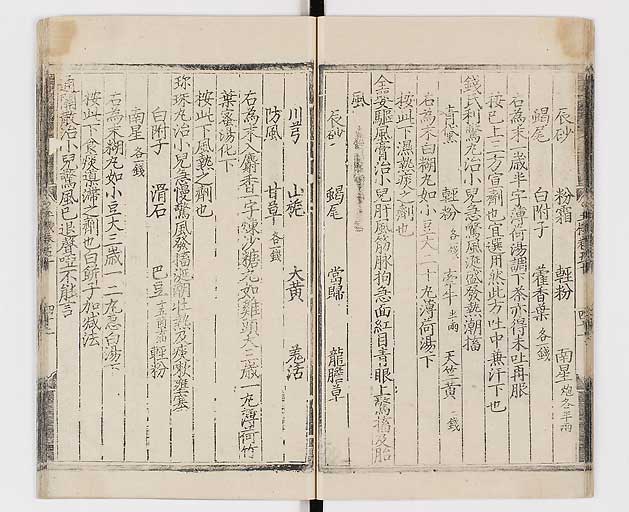 辰砂 粉霜 輕粉 南星炮各半兩
蝎尾 白附子 藿香葉各一錢
右為末一歲半字薄荷湯調下茶亦得未吐再服
按已上二方宣劑也宜選用然此方吐中兼汗下也
錢氏利驚丸治小兒急驚風涎盛發熱潮搐
青黛 輕粉各一錢 牽牛半兩 天竺黃二錢
右為末白糊丸如小豆大二十丸薄荷湯下
按此下濕熱痰之劑也
金 驅風膏治小兒肝風筋脉拘急面紅目青眼上驚搐及胎
風
辰砂 蝎尾 當歸 龍膽草
川芎 山梔 大黃 羌活
防風 甘草各一錢
右為末入麝香一字煉沙糖丸如雞頭大三歲一丸薄荷竹
葉蜜湯化下
按此下風熱之劑也
珍珠丸治小兒急慢驚風發搐涎潮壯熱及痰嗽壅塞
白附子 滑石 巴豆十五 輕粉
南星各一錢
右為末糊丸如小豆大三歲一二丸葱白湯下
按此下食痰壅滯之劑也白餅子加減法
通關散治小兒驚風已退聲啞不能言